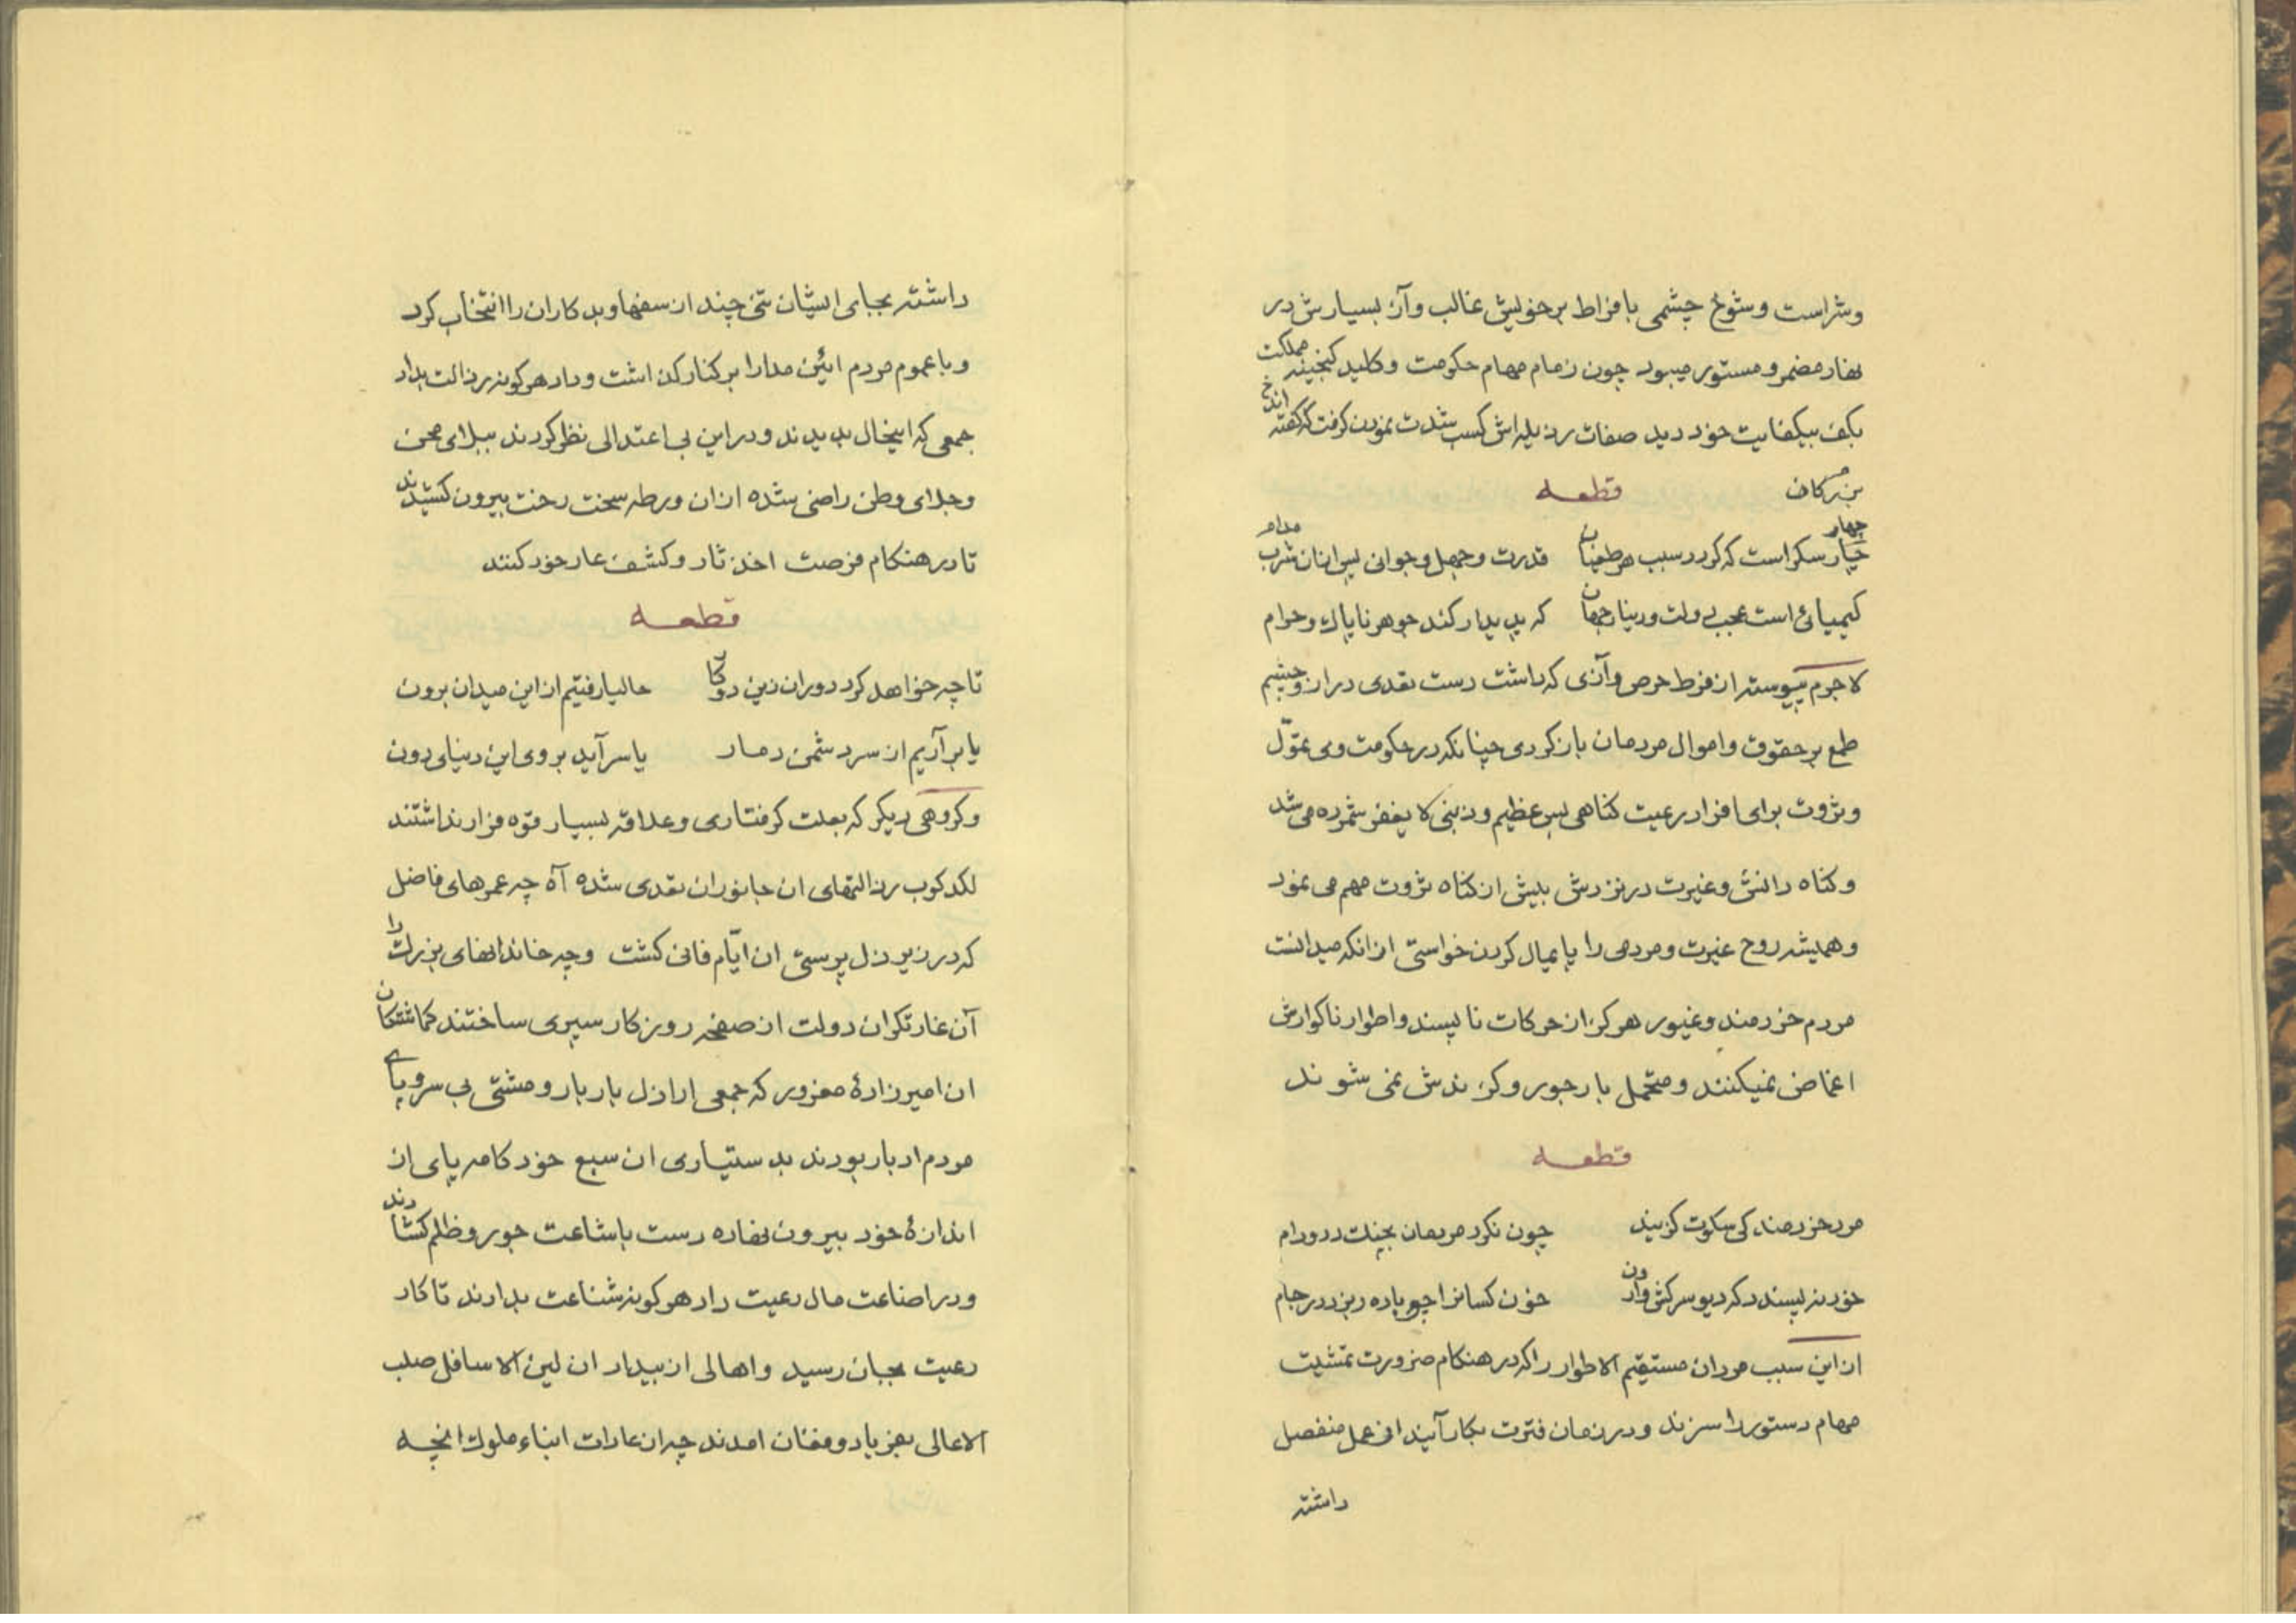 وشراست وشوخ چشمی بافراط برخویش غالب وآز بسیارش در
نهاد مضمر و مستور میبود چون زمام مهام حکومت وکلید کنجینه مملکت
بکف بیکفایت خود دید صفات رذیله‌اش کسب شدت نمودن کرفت که کفته اند
بزرکان قطعه
چهار
چار سکر است که کردد سبب هر طغیان قدرت وجهل وجوانی پس ازان شرب مدام
کیمیائی است عجب دولت ودنیا جهان که پدیدار کند جوهر ناپاک وحرام
لاجرم پیوسته از فرط حرص وآزی که داشت دست تعدی دراز وچشم
طمع بر حقوق واموال مردمان بازکردی چنانکه در حکومت وی تموّل
وثروت برای افراد رعیت کناهی بس عظیم وذنبی لا یغفر شمرده می شد
وکناه دانش وغیرت در نزدش بیش از کناه ثروت مهم می نمود
وهمیشه روح غیرت ومردمی را پایمال کردن خواستی از انکه میدانست
مردم خردمند وغیور هرکز از حرکات ناپسند واطوار ناکوارش
اغماض نمیکنند ومتحمل بار جور وکزندش نمی شوند
قطعه
مرد خردمند کی سکوت کزیند چون نکرد مردمان بچنک دد ودام
خود نه پسندد که دیو سرکش وارون خون کسانرا چو باده ریزد در جام
از این سبب مردان مستقیم الاطوار راکه در هنکام ضرورت تمشیت
مهام دستور را سزند و در زمان فترت بکار آیند از عمل منفصل
داشته
داشته بجای ایشان تنی چند از سفها وبدکاران را انتخاب کرد
وبا عموم مردم ائین مدارا بر کنار کذاشت وداد هرکونه رذالت بداد
جمعی که اینحال بدیدند ودر این بی اعتدالی نظر کردند ببلای محن
وجلای وطن راضی شده ازان ورطه سخت رخت بیرون کشیدند
تا در هنکام فرصت اخذ ثار وکشف عار خود کنند
قطعه
تا چه خواهد کرد دوران زین دوکار حالیا رفتیم از این میدان برون
یا برآریم از سر دشمن دمار یا سرآید بروی این دنیای دون
وکروهی دیکر که بعلت کرفتاری وعلاقه بسیار قوه فرار نداشتند
لکدکوب رذالتهای ان جانوران تعدی شده آه چه عمرهای فاضل
که در زیر ذل پرستی ان ایّام فانی کشت وچه خاندانهای بزرک را
آن غارتکران دولت از صفحه روزکار سپری ساختند کماشتکان
ان امیرزادهٔ مغرور که جمعی اراذل باربار ومشتی بی سروپای
مردم ادبار بودند بدستیاری ان سبع خودکامه پای از
اندازهٔ خود بیرون نهاده دست باشاعت جور وظلم کشادند
ودر اضاعت مال رعیت داد هرکونه شناعت بدادند تا کار
رعیت بجان رسید واهالی از بیداد ان لین الاسافل صلب
الاعالی بفریاد وفغان امدند چه از عادات ابناء ملوک انچه